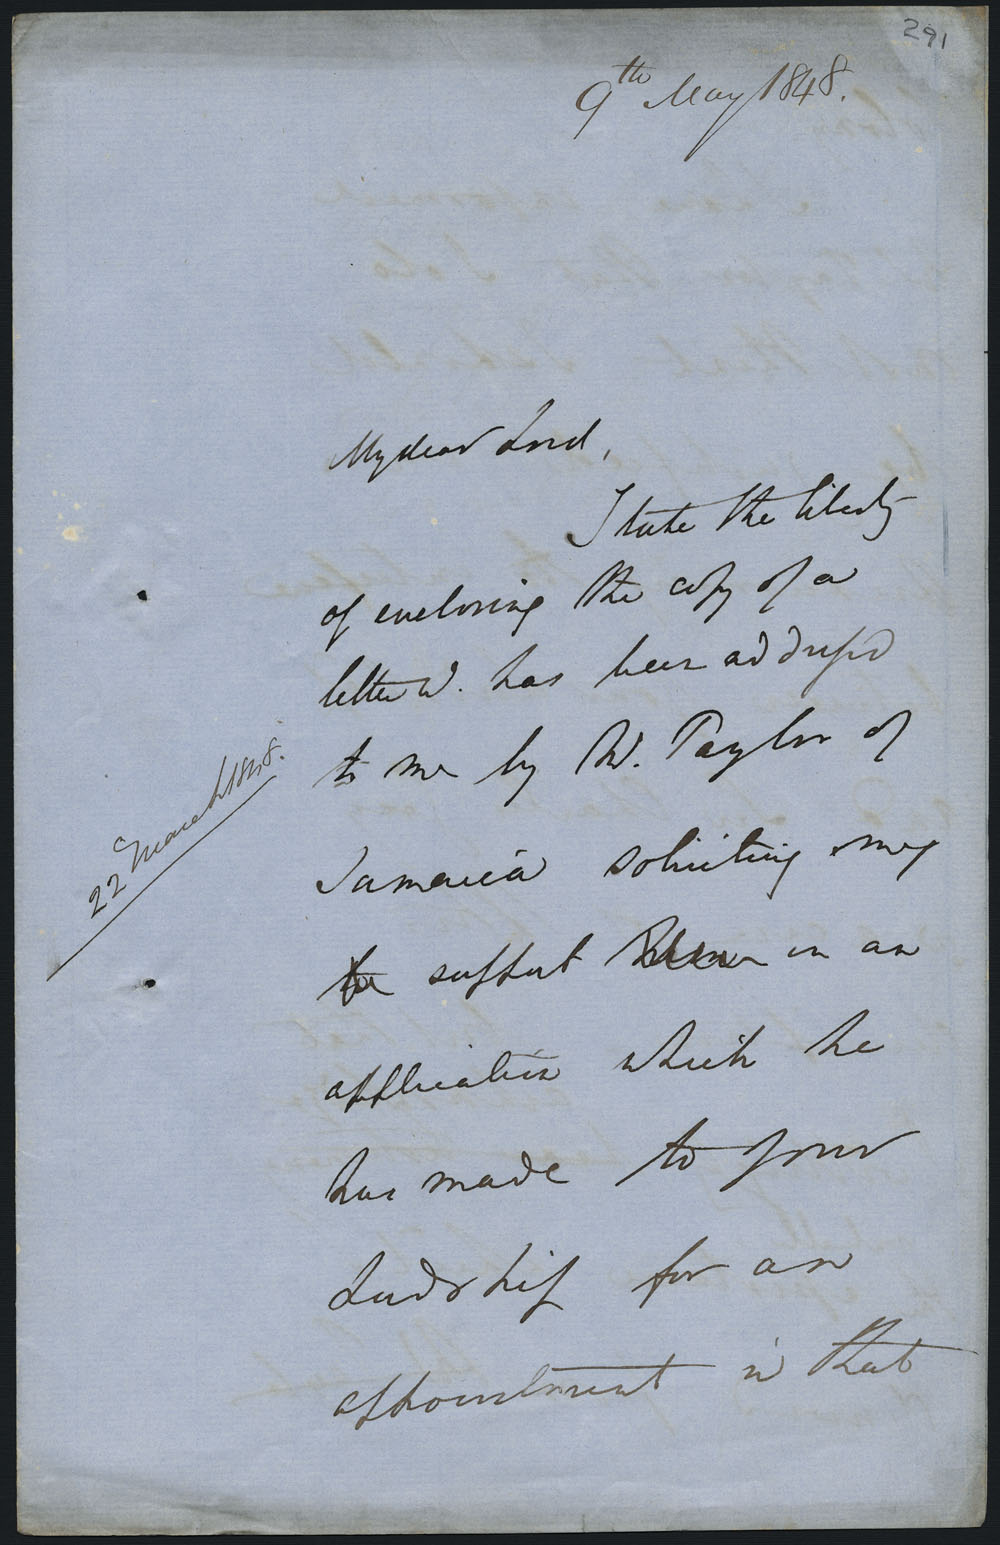 291
9th May 1848.
My dear Lord,
I take the liberty
of enclosing the copy of a
letter wh. has been addressed
to me by Mr. Taylor of
Jamaica soliciting me
to support him in an
application which he
has made to your
Lordship for an
appointment in that
22d March 1848.